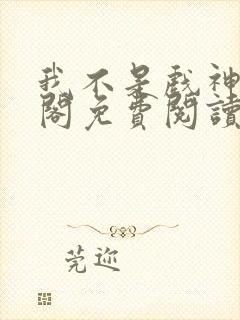 我不是戲神
閣免費閱讀
莞迩